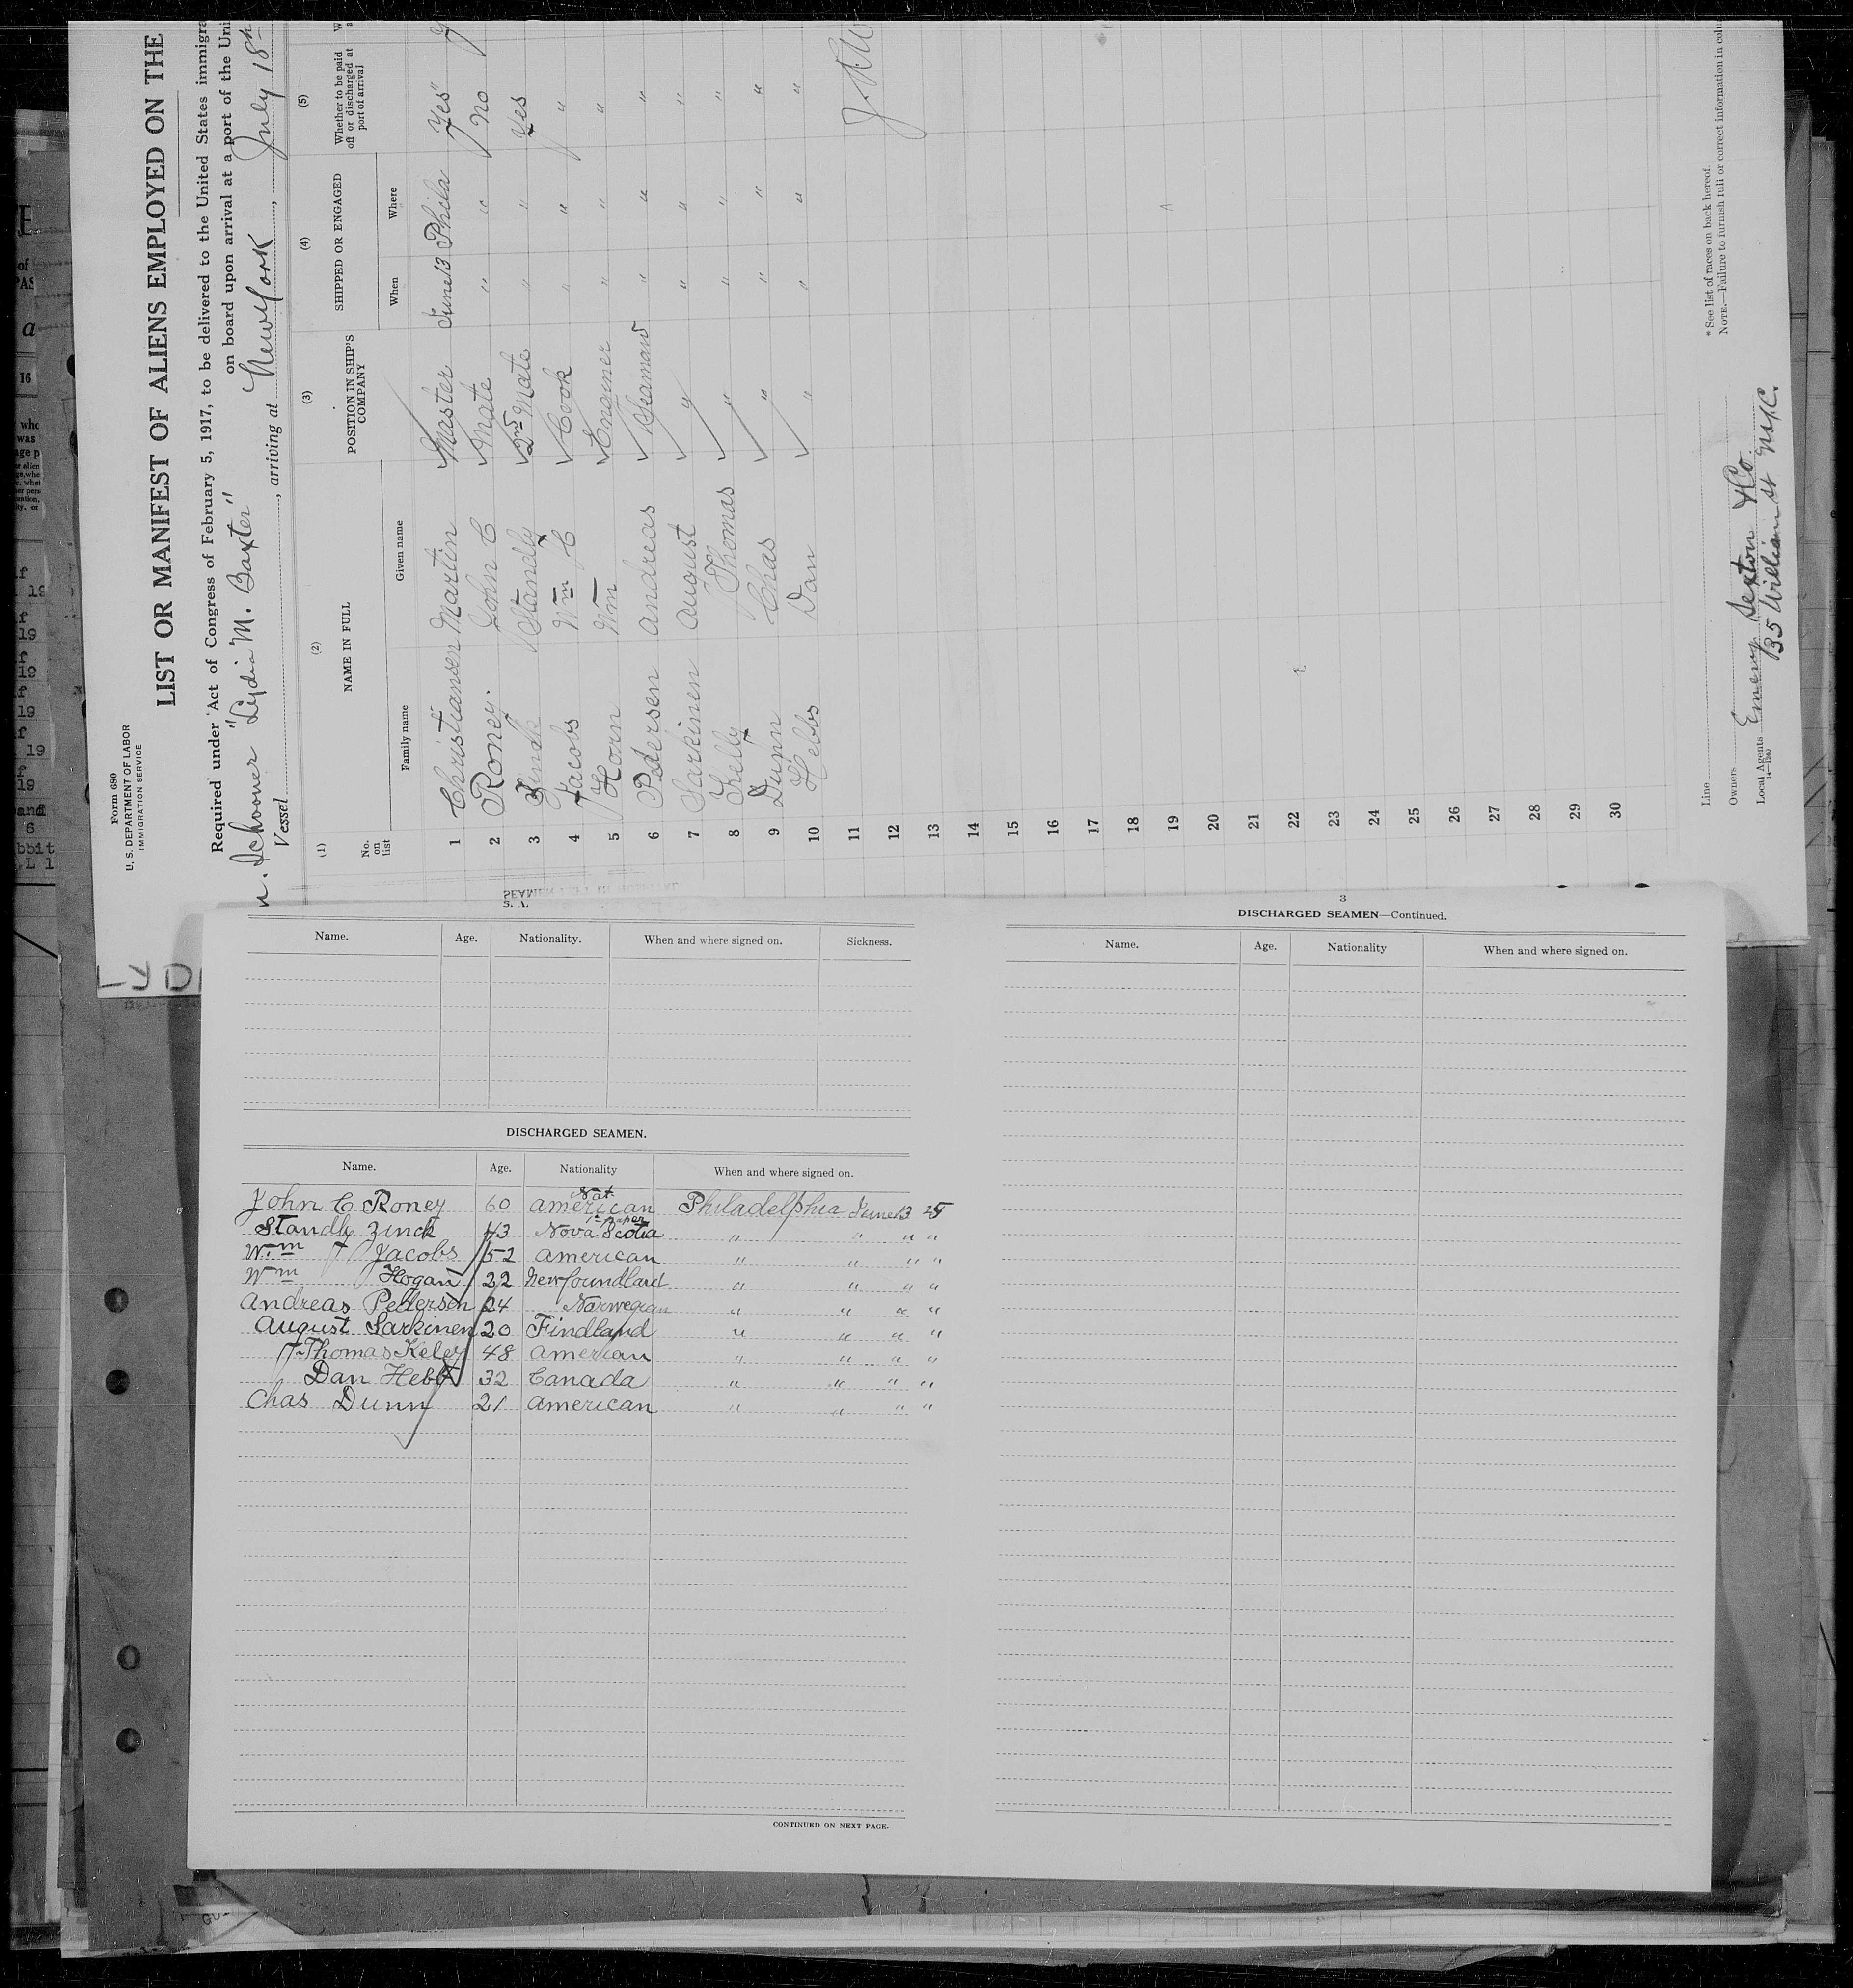 Form 680
U. S. DEPARTMENT OF LABOR
IMMIGRATION SERVICE
LIST OR MANIFEST OF ALIENS EMPLOYED ON THE
Required under Act of Congress of February 5, 1917, to be delivered to the United States immigra
on board upon arrival at a port of the Uni
Vessel Schooner "Lydia M. Baxter", arriving at New York, July 18th
(1) (2) (3) (4) (5)
No. on list NAME IN FULL POSITION IN SHIP'S COMPANY SHIPPED OR ENGAGED Whether to be paid off or discharged at port of arrival
Family name Given name When Where
1 Christiansen Martin Master June 13 Phila Yes
2 Roney. John C Mate " " No
3 Zinck Standly 2nd Mate " " Yes
4 Jacobs Wm C Cook " " "
5 Horn Wm Engineer " " "
6 Pedersen Andreas Seaman " " "
7 Sarkinen August " " " "
8 Kelly Thomas " " " "
9 Dunn Chas " " " "
10 Hebbs Dan " " " "
11
12
13
14
15
16
17
18
19
20
21
22
23
24
25
26
27
28
29
30
Line
Owners
Local Agents Emery Sexton & Co.
35 William st N.Y.C.
14—1240
* See list of races on back hereof.
NOTE.—Failure to furnish full or correct information in colu
LYDI
Name. Age. Nationality. When and where signed on. Sickness.
DISCHARGED SEAMEN.
Name. Age. Nationality When and where signed on.
Nat.
John C Roney 60 American Philadelphia June 13 25
1st paper
Standly Zinck 43 Nova Scotia " " " "
Wm Jacobs 52 American " " " "
Wm Hogan 22 Newfoundland " " " "
Andreas Pedersen 24 Norwegian " " " "
August Sarkinen 20 Findland " " " "
Thomas Keley 48 American " " " "
Dan Hebb 32 Canada " " " "
Chas Dunn 21 American " " " "
CONTINUED ON NEXT PAGE.
3
DISCHARGED SEAMEN—Continued.
Name. Age. Nationality When and where signed on.